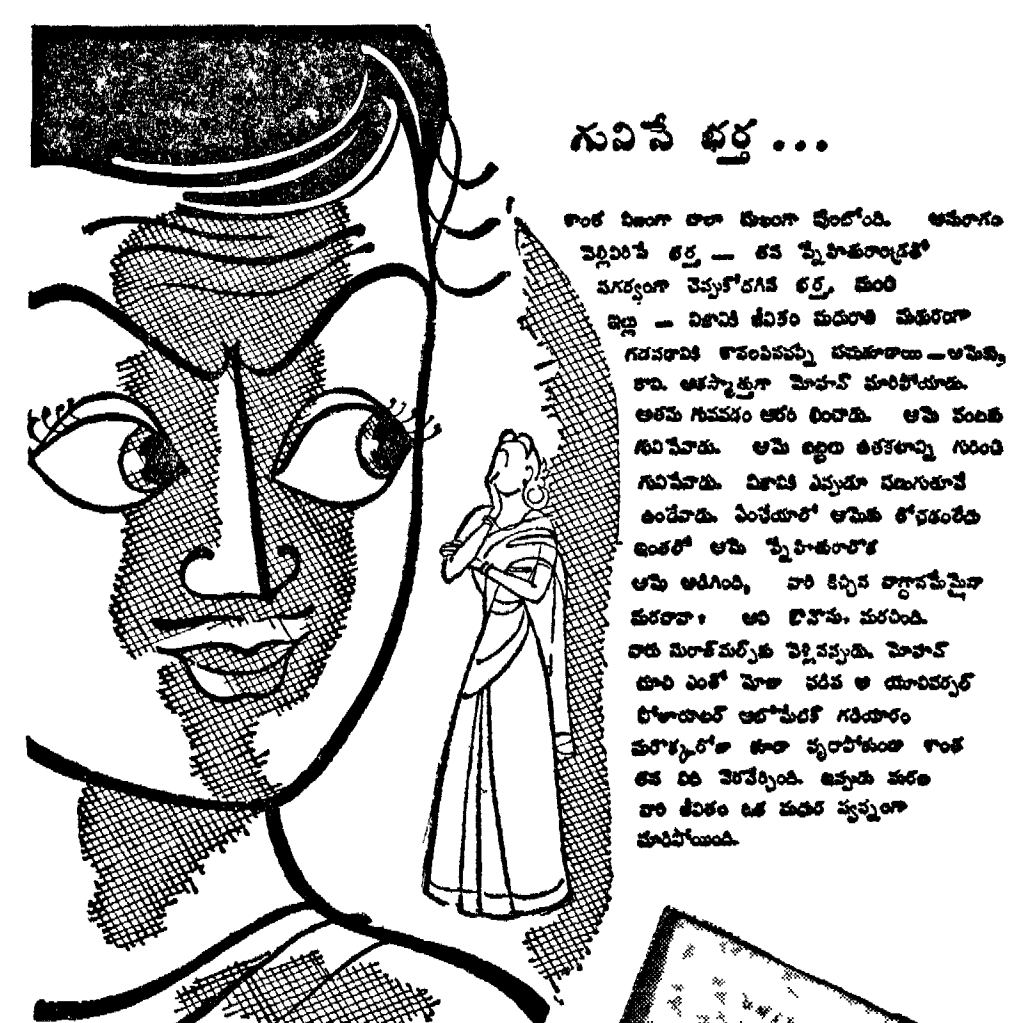 గునిసే భర్త ...
కాంత నిజంగా చాలా సుఖంగా వుంటోంది. అనురాగం
వెల్లివిరిసే భర్త — తన స్నేహితురాండ్రతో
సగర్వంగా చెప్పుకోదగిన భర్త, మంచి
ఇల్లు — నిజానికి జీవితం మధురాతి మధురంగా
గడవడానికి కావలసినవన్నీ
కాని, ఆకస్మాత్తుగా మోహన్ మారిపోయాడు.
అతను గునవడం ఆరం భించాడు. ఆమె వంటకు
గునిసేవాడు. ఆమె ఇల్లలు ఉతకటాన్ని గురించి
గునిసేవాడు. నిజానికి ఎప్పుడూ సణుగుతూనే
ఉండేవాడు. ఏంచేయాలో ఆమెకు తోచడంలేదు
ఇంతలో ఆమె స్నేహితురాలొక
ఆమె అడిగింది, వారి కిచ్చిన వాగ్దానమేమైనా
మరచావా? అది కొనాను. మరచింది.
వారు వెళ్లినప్పుడు, మోహన్
చూచి ఎంతో మోజు పడిన ఆ యూనివర్సల్
గడియారం
మరొక్కరోజు కూడా వృధాపోకుండా కాంత
తన విధి నెరవేర్చింది. ఇప్పుడు మరల
వారి జీవితం ఒక మధుర స్వప్నంగా
మారిపోయింది.